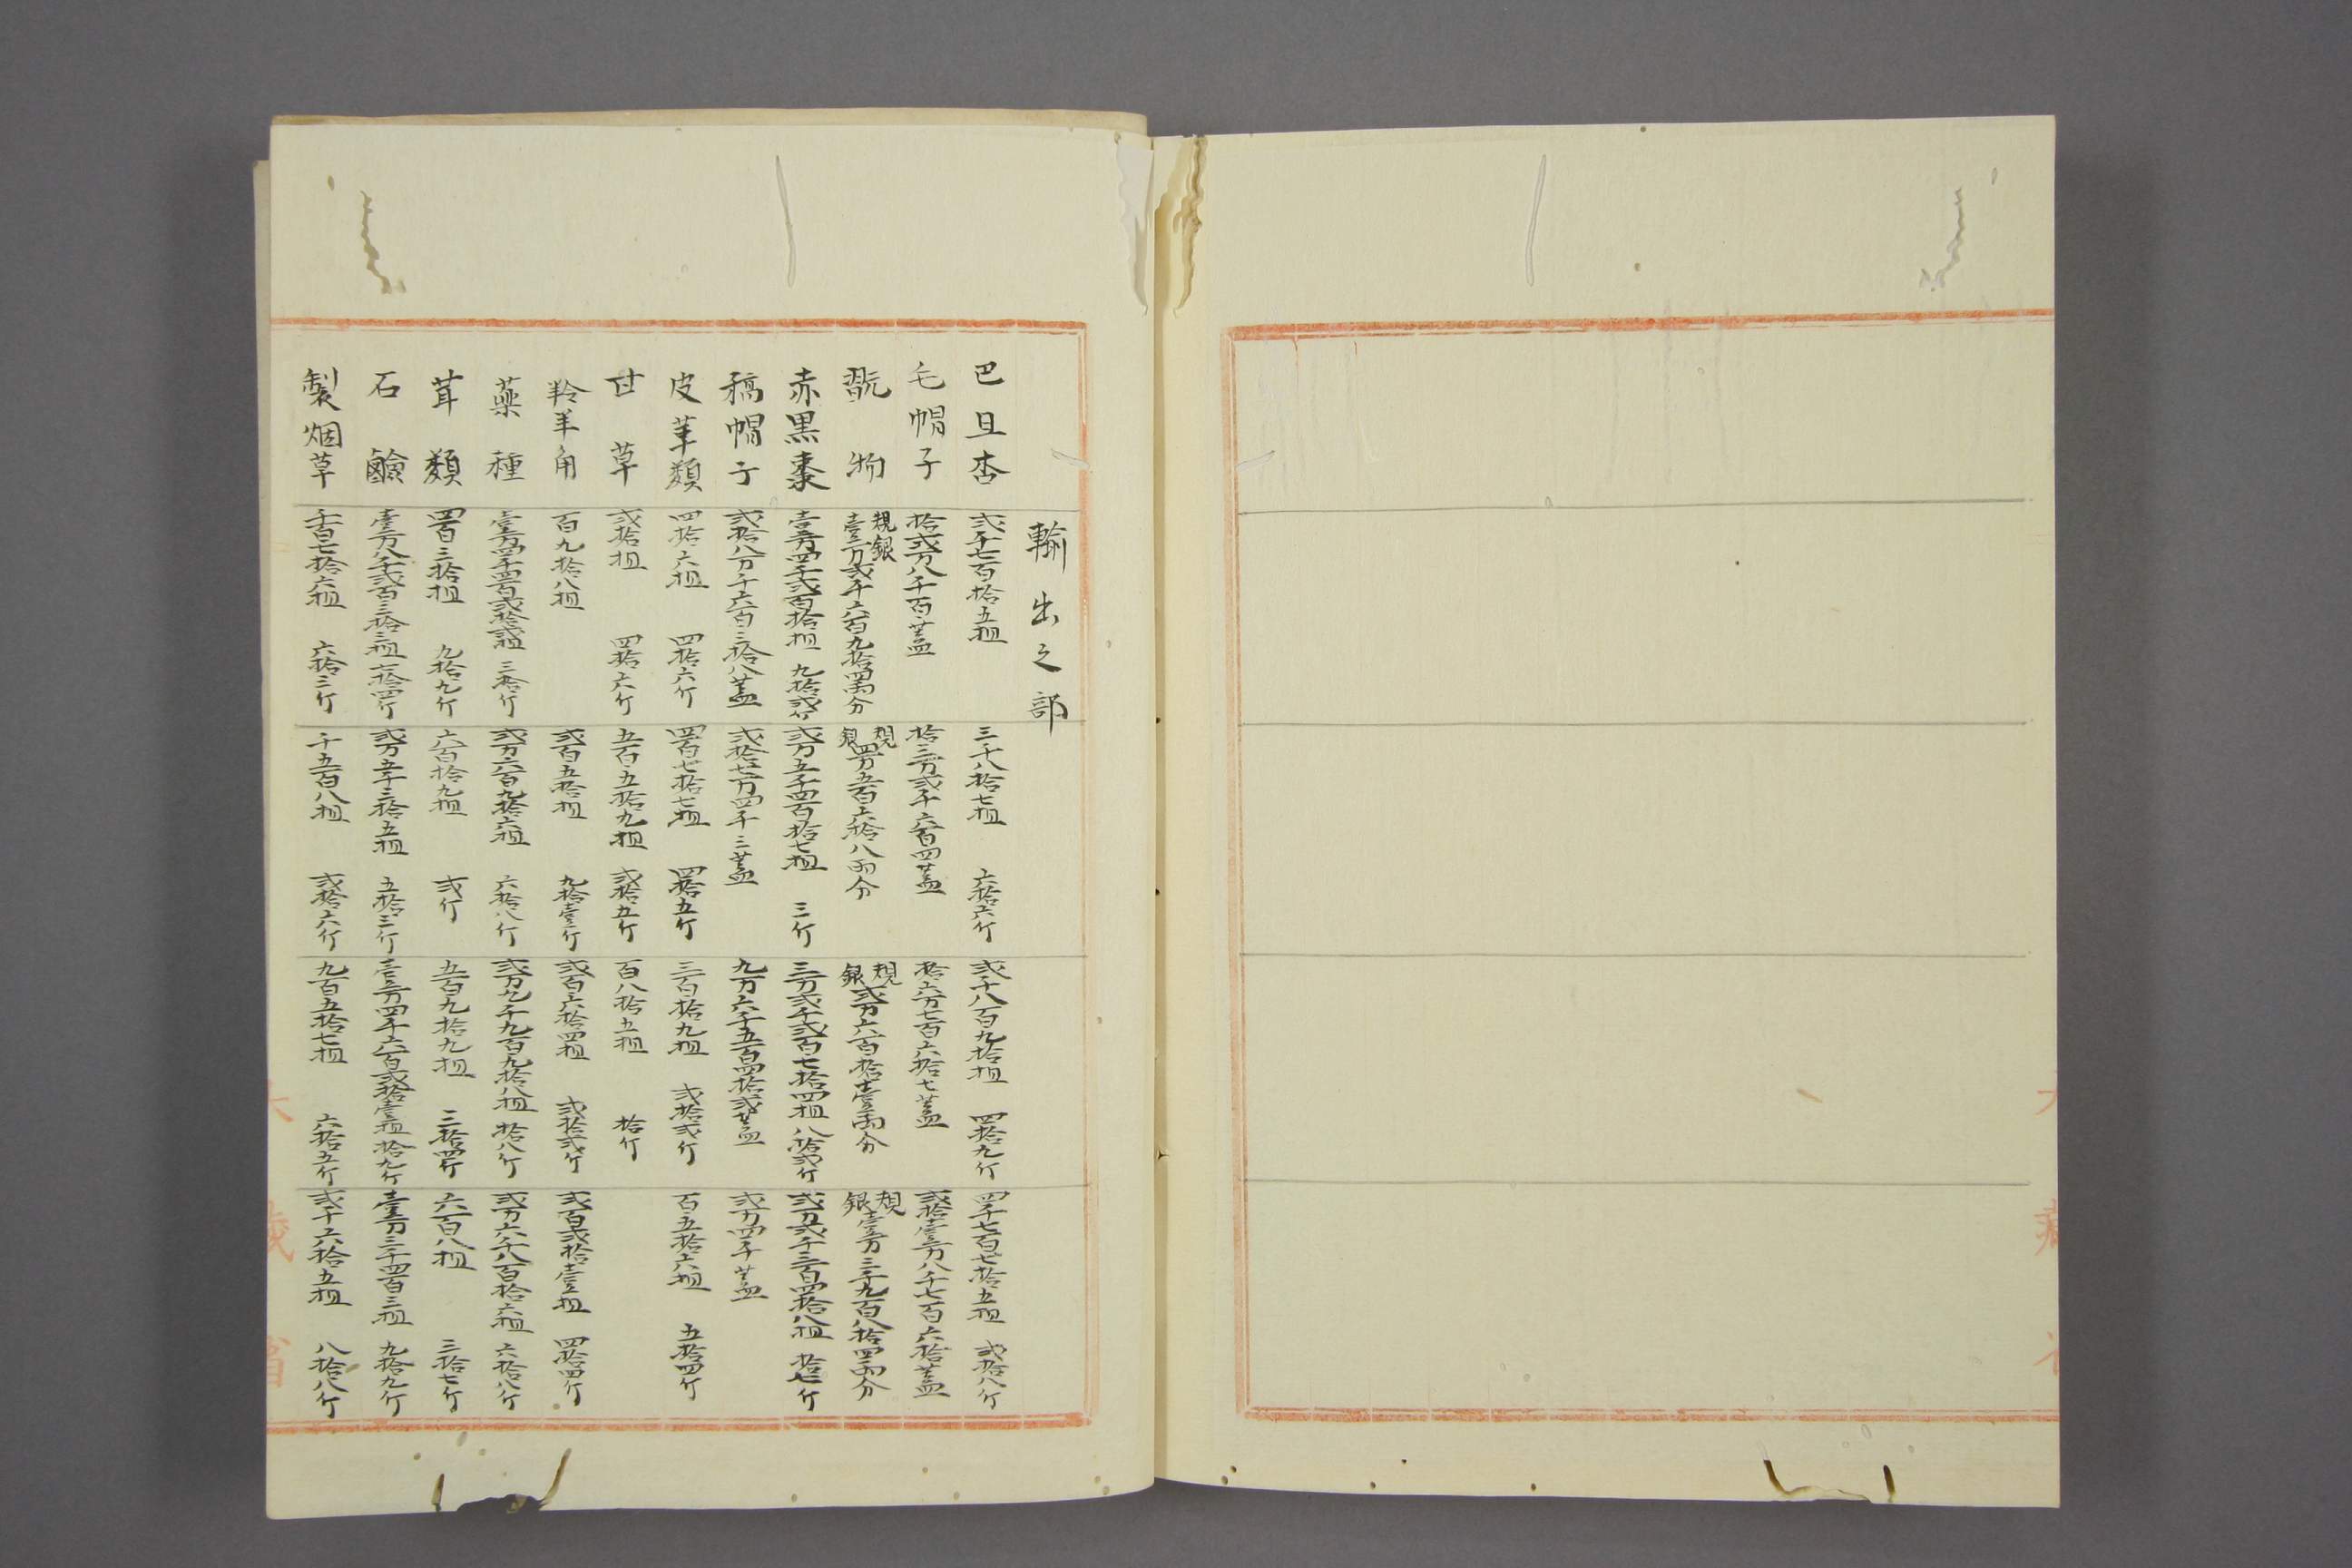 輸出之部
巴旦杏 弐千七百拾五担 三千八拾七担 六拾六斤 弐千八百九拾担 四拾九斤 四千七百七拾五担 弐拾八斤
毛帽子 拾弐万八千百蓋 拾三万弐千六百四蓋 拾六万七百六拾七蓋 弐拾壹万八千七百六拾蓋
翫物 規銀壹万弐千六百九拾四両分 規銀四万五百六拾八両分 規銀弐万六百拾壹両分 規銀壹万三千九百八拾四両分
赤黒棗 壹万四千弐百拾担 九拾弐斤 弐万五千四百拾七担 三斤 三万弐千弐百七拾四担 八拾弐斤 弐万弐千三百四拾八担 拾七斤
稿帽子 弐拾八万千六百三拾八蓋 弐拾七万四千三蓋 九万六千五百四拾弐蓋 弐万四千蓋
皮革類 四拾六担 四拾六斤 四百七拾七担 四拾五斤 三百拾九担 弐拾弐斤 百五拾六担 五拾四斤
甘草 弐拾担 四拾六斤 五百五拾九担 弐拾五斤 百八拾五担 拾斤
羚羊角 百九拾八担 弐百五拾担 九拾壹斤 弐百六拾四担 弐拾弐斤 弐百弐拾壹担 四拾四斤
薬種 壹万四千四百弐拾弐担 三拾斤 弐万六百九拾六担 六拾八斤 弐万九千九百九拾八担 拾八斤 弐万六千八百拾六担 六拾八斤
茸類 四百三拾担 九拾九斤 六百拾九担 弐斤 五百九拾九担 三拾四斤 六百八担 三拾七斤
石鹼 壹万八千弐百三拾三担 六拾四斤 弐万五千三拾五担 五拾三斤 壹万四千六百弐拾壹担 拾九斤 壹万三千四百三担 九拾九斤
製烟草 千百七拾六担 六拾三斤 千五百八担 弐拾六斤 九百五拾七担 六拾五斤 弐千六拾五担 八拾八斤